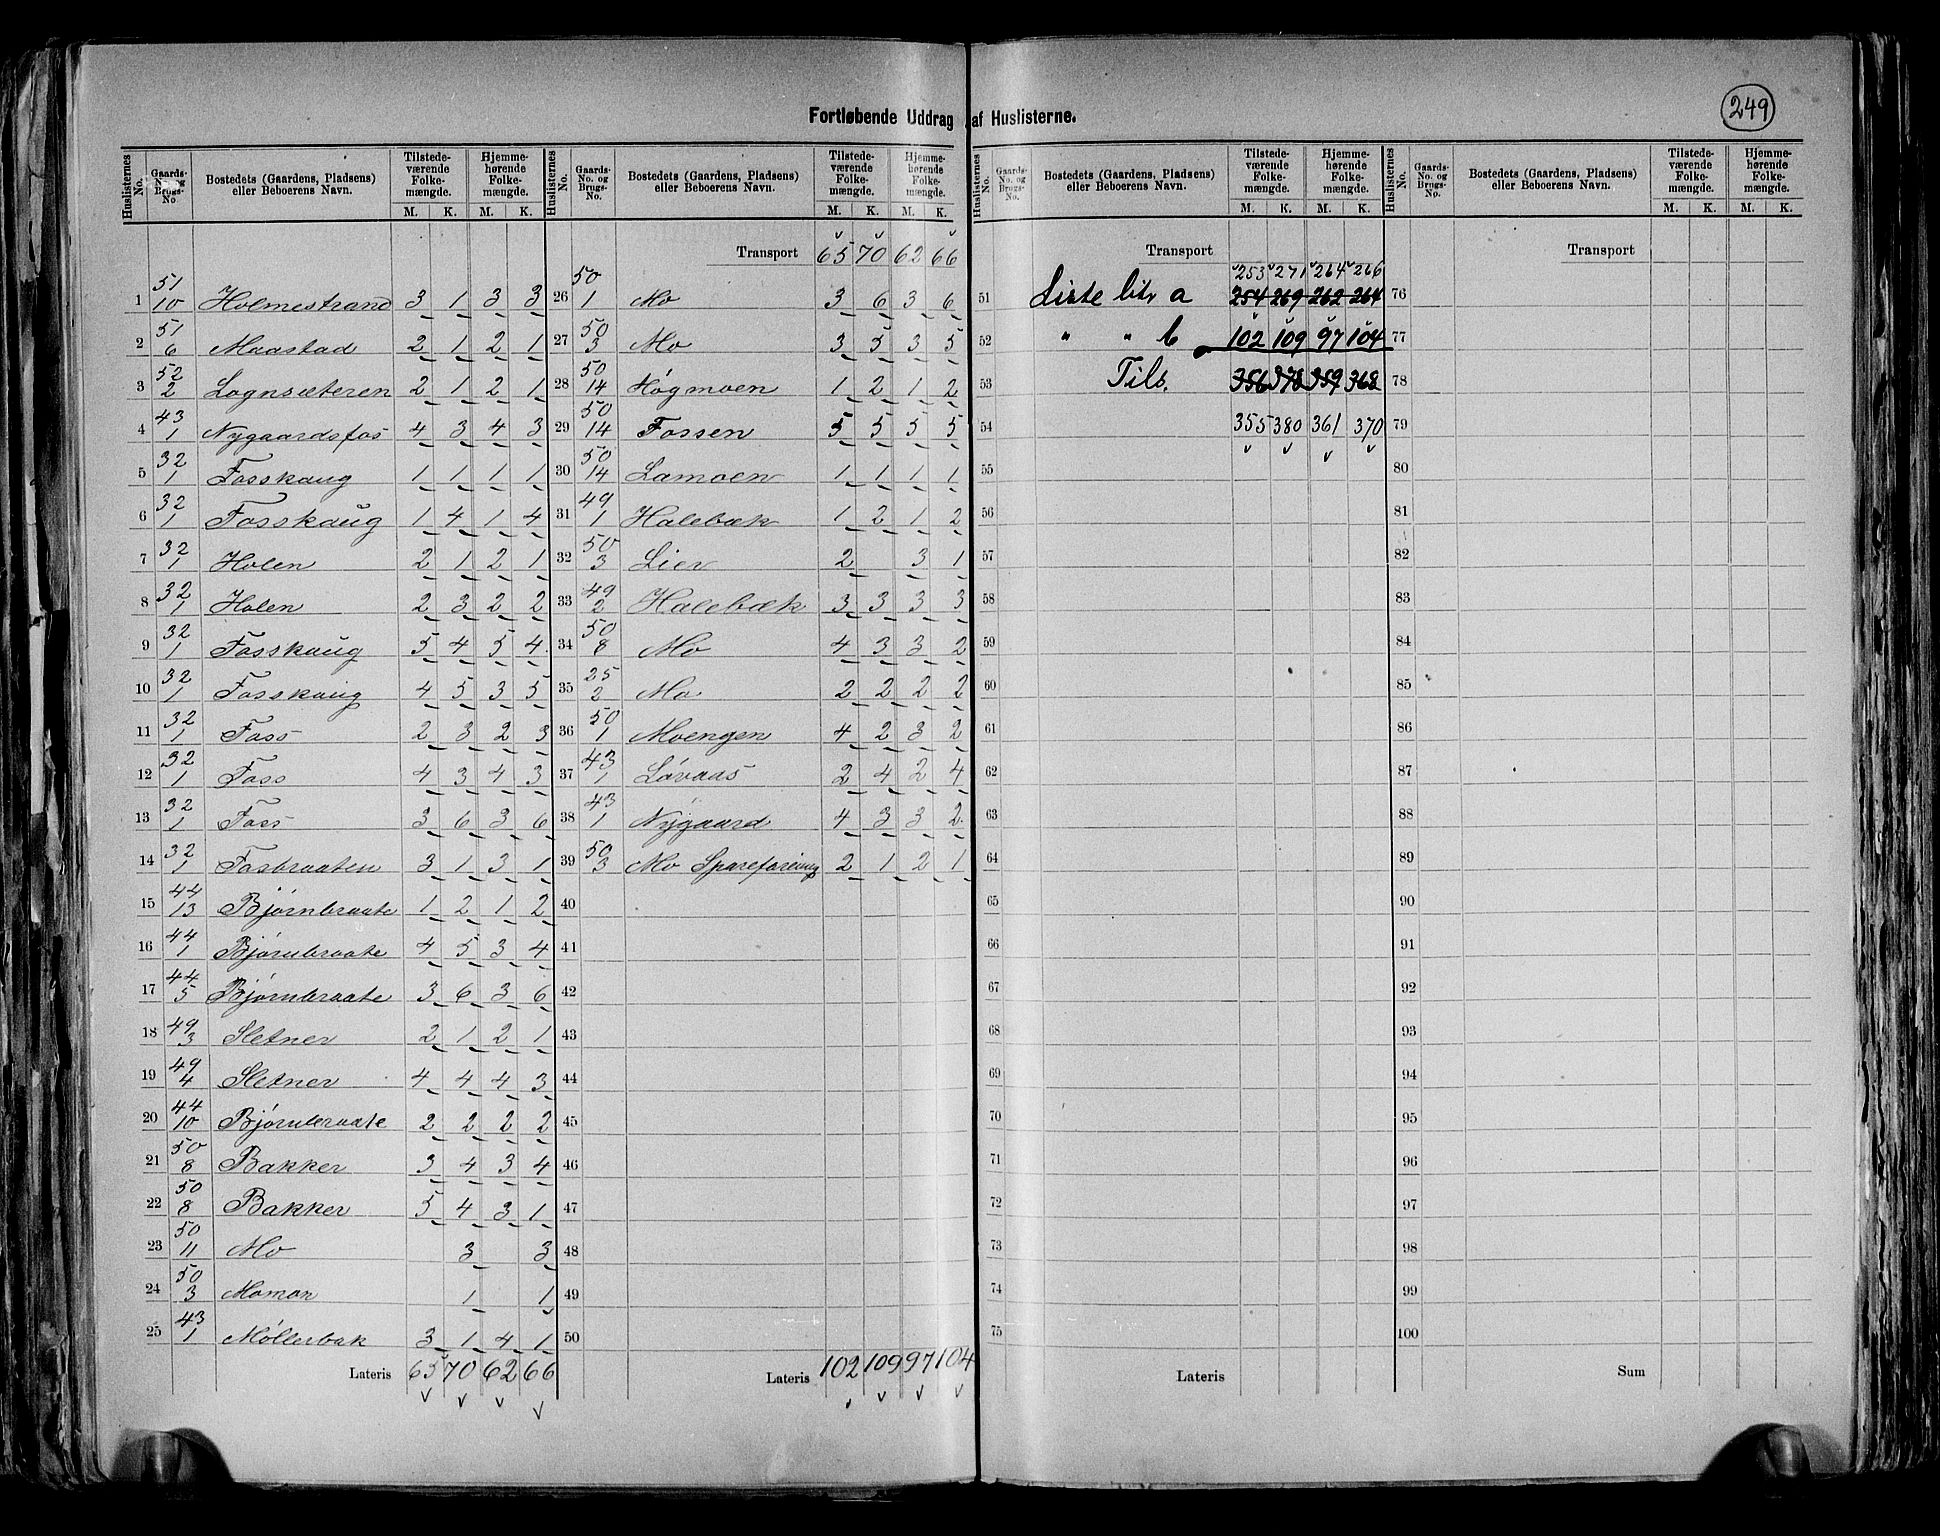 249
Fortløbende Uddrag af Huslisterne.
Huslisternes No. | Gaards- No. og Brugs- No. | Bostedets (Gaardens, Pladsens) eller Beboerens Navn. | Tilstedeværende Folkemængde. M. K. | Hjemmehørende Folkemængde. M. K.
1 51/10 Holmestrand 3 1 3 3
2 51/6 Maastad 2 1 2 1
3 52/2 Lognsæteren 2 1 2 1
4 43/1 Nygaardsfos 4 3 4 3
5 32/1 Fosskaug 1 1 1 1
6 32/1 Fosskaug 1 4 1 4
7 32/1 Holen 2 1 2 1
8 32/1 Holen 2 3 2 2
9 32/1 Fosskaug 5 4 5 4
10 32/1 Fosskaug 4 5 3 5
11 32/1 Foss 2 3 2 3
12 32/1 Foss 4 3 4 3
13 32/1 Foss 3 6 3 6
14 32/1 Fosbraaten 3 1 3 1
15 44/13 Bjørnbraate 1 2 1 2
16 44/1 Bjørnbraate 4 5 3 4
17 44/5 Bjørnbraate 3 6 3 6
18 49/3 Sletner 2 1 2 1
19 49/4 Sletner 4 4 4 3
20 44/10 Bjørnbraate 2 2 2 2
21 50/8 Bakker 3 4 3 4
22 50/8 Bakker 5 4 3 1
23 50/11 Mo 3 3
24 50/3 Momon 1 1
25 43/1 Møllerbak 3 1 4 1
Lateris 65 70 62 66
Huslisternes No. | Gaards- No. og Brugs- No. | Bostedets (Gaardens, Pladsens) eller Beboerens Navn. | Tilstedeværende Folkemængde. M. K. | Hjemmehørende Folkemængde. M. K.
Transport 65 70 62 66
26 50/1 Mo 3 6 3 6
27 50/3 Mo 3 5 3 5
28 50/14 Høgmoen 1 2 1 2
29 50/14 Fossen 5 5 5 5
30 50/14 Lamoen 1 1 1 1
31 49/1 Halebæk 1 2 1 2
32 50/3 Lier 2 3 1
33 49/2 Halebæk 3 3 3 3
34 50/8 Mo 4 3 3 2
35 25/2 Mo 2 2 2 2
36 50/1 Moengen 4 2 3 2
37 43/1 Løvaas 2 4 2 4
38 43/1 Nygaard 4 3 3 2
39 50/3 Mo Spareforening 2 1 2 1
40
41
42
43
44
45
46
47
48
49
50
Lateris 102 109 97 104
Huslisternes No. | Gaards- No. og Brugs- No. | Bostedets (Gaardens, Pladsens) eller Beboerens Navn. | Tilstedeværende Folkemængde. M. K. | Hjemmehørende Folkemængde. M. K.
Transport
253 271 264 266
51 Liste litr a 254 269 262 264
52 " " b 102 109 97 104
53 Tils. 356 378 359 368
54 355 380 361 370
55
56
57
58
59
60
61
62
63
64
65
66
67
68
69
70
71
72
73
74
75
Lateris
Huslisternes No. | Gaards- No. og Brugs- No. | Bostedets (Gaardens, Pladsens) eller Beboerens Navn. | Tilstedeværende Folkemængde. M. K. | Hjemmehørende Folkemængde. M. K.
Transport
76
77
78
79
80
81
82
83
84
85
86
87
88
89
90
91
92
93
94
95
96
97
98
99
100
Sum